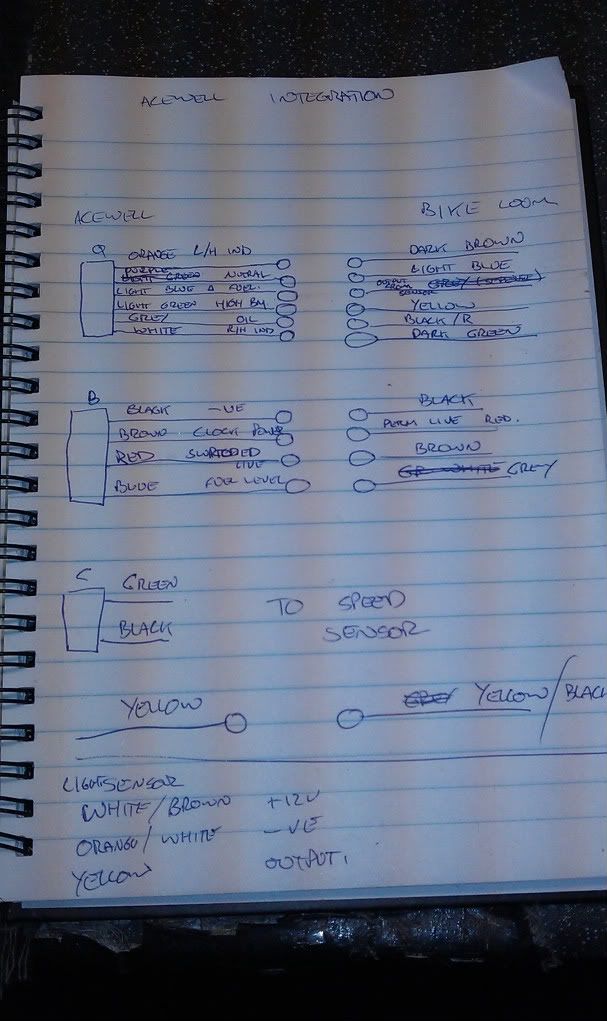 ACEWELL INTEGRATION
ACEWELL BIKE LOOM
ORANGE L/H IND DARK BROWN
PURPLE NUTRAL LIGHT BLUE
LIGHT BLUE Δ FUEL. SENSOR
LIGHT GREEN HIGH BM. YELLOW
GREY OIL BLACK/R
WHITE R/H IND DARK GREEN
B
BLACK -VE BLACK
BROWN CLOCK POWER PERM LIVE RED.
RED LIVE BROWN
BLUE FUEL LEVEL GREY
C
GREEN
BLACK
TO SPEED
SENSOR
YELLOW YELLOW/BLACK
LIGHTSENSOR
WHITE/BROWN +12V
ORANGE/WHITE -VE
YELLOW OUTPUT.